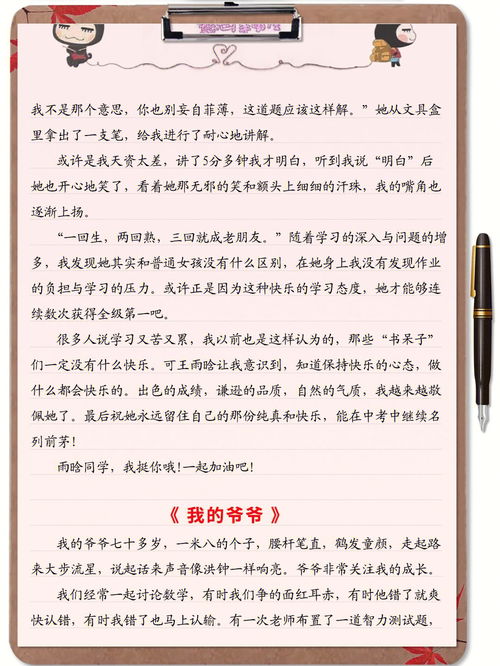 我不是那个意思，你也别妄自菲薄，这道题应该这样解。”她从文具盒
里拿出了一支笔，给我进行了耐心地讲解。
或许是我天资太差，讲了5分多钟我才明白，听到我说“明白”后
她也开心地笑了，看着她那无邪的笑和额头上细细的汗珠，我的嘴角也
逐渐上扬。
“一回生，两回熟，三回就成老朋友。”随着学习的深入与问题的增
多，我发现她其实和普通女孩没有什么区别，在她身上我没有发现作业
的负担与学习的压力。或许正是因为这种快乐的学习态度，她才能够连
续数次获得全级第一吧。
很多人说学习又苦又累，我以前也是这样认为的，那些“书呆子”
们一定没有什么快乐。可王雨晗让我意识到，知道保持快乐的心态，做
什么都会快乐的。出色的成绩，谦逊的品质，自然的气质，我越来越敬
佩她了。最后祝她永远留住自己的那份纯真和快乐，能在中考中继续名
列前茅！
雨晗同学，我挺你哦！一起加油吧！
《 我的爷爷 》
我的爷爷七十多岁，一米八的个子，腰杆笔直，鹤发童颜，走起路
来大步流星，说起话来声音像洪钟一样响亮。爷爷非常关注我的成长。
我们经常一起讨论数学，有时我们争的面红耳赤，有时他错了就爽
快认错，有时我错了也马上认输。有一次老师布置了一道智力测试题，